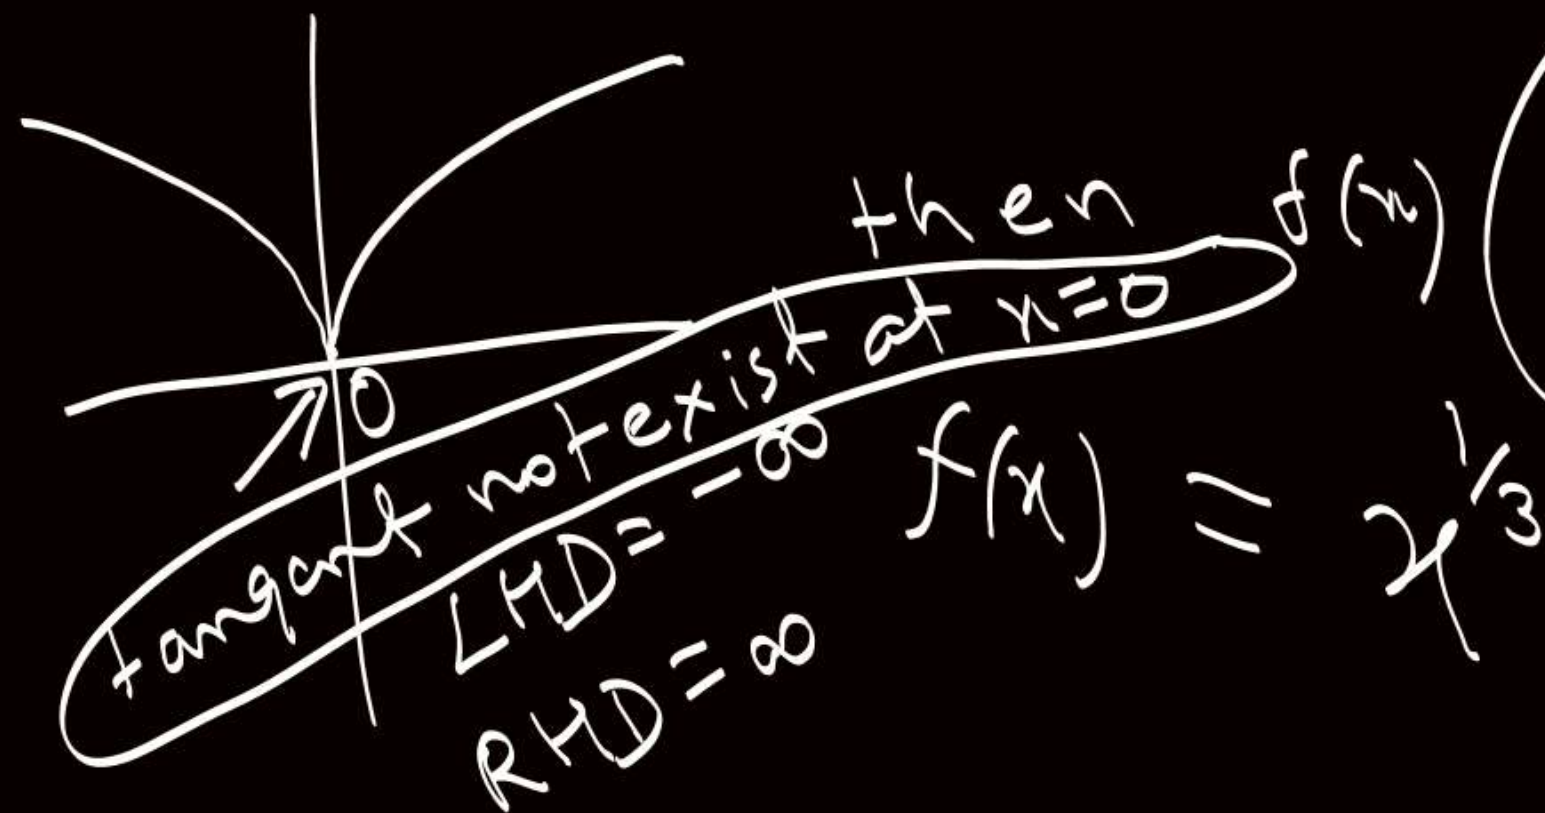 then f(x)
0
tangant not exist at x=0
LHD= -∞
RHD=∞
f(x) = x^1/3